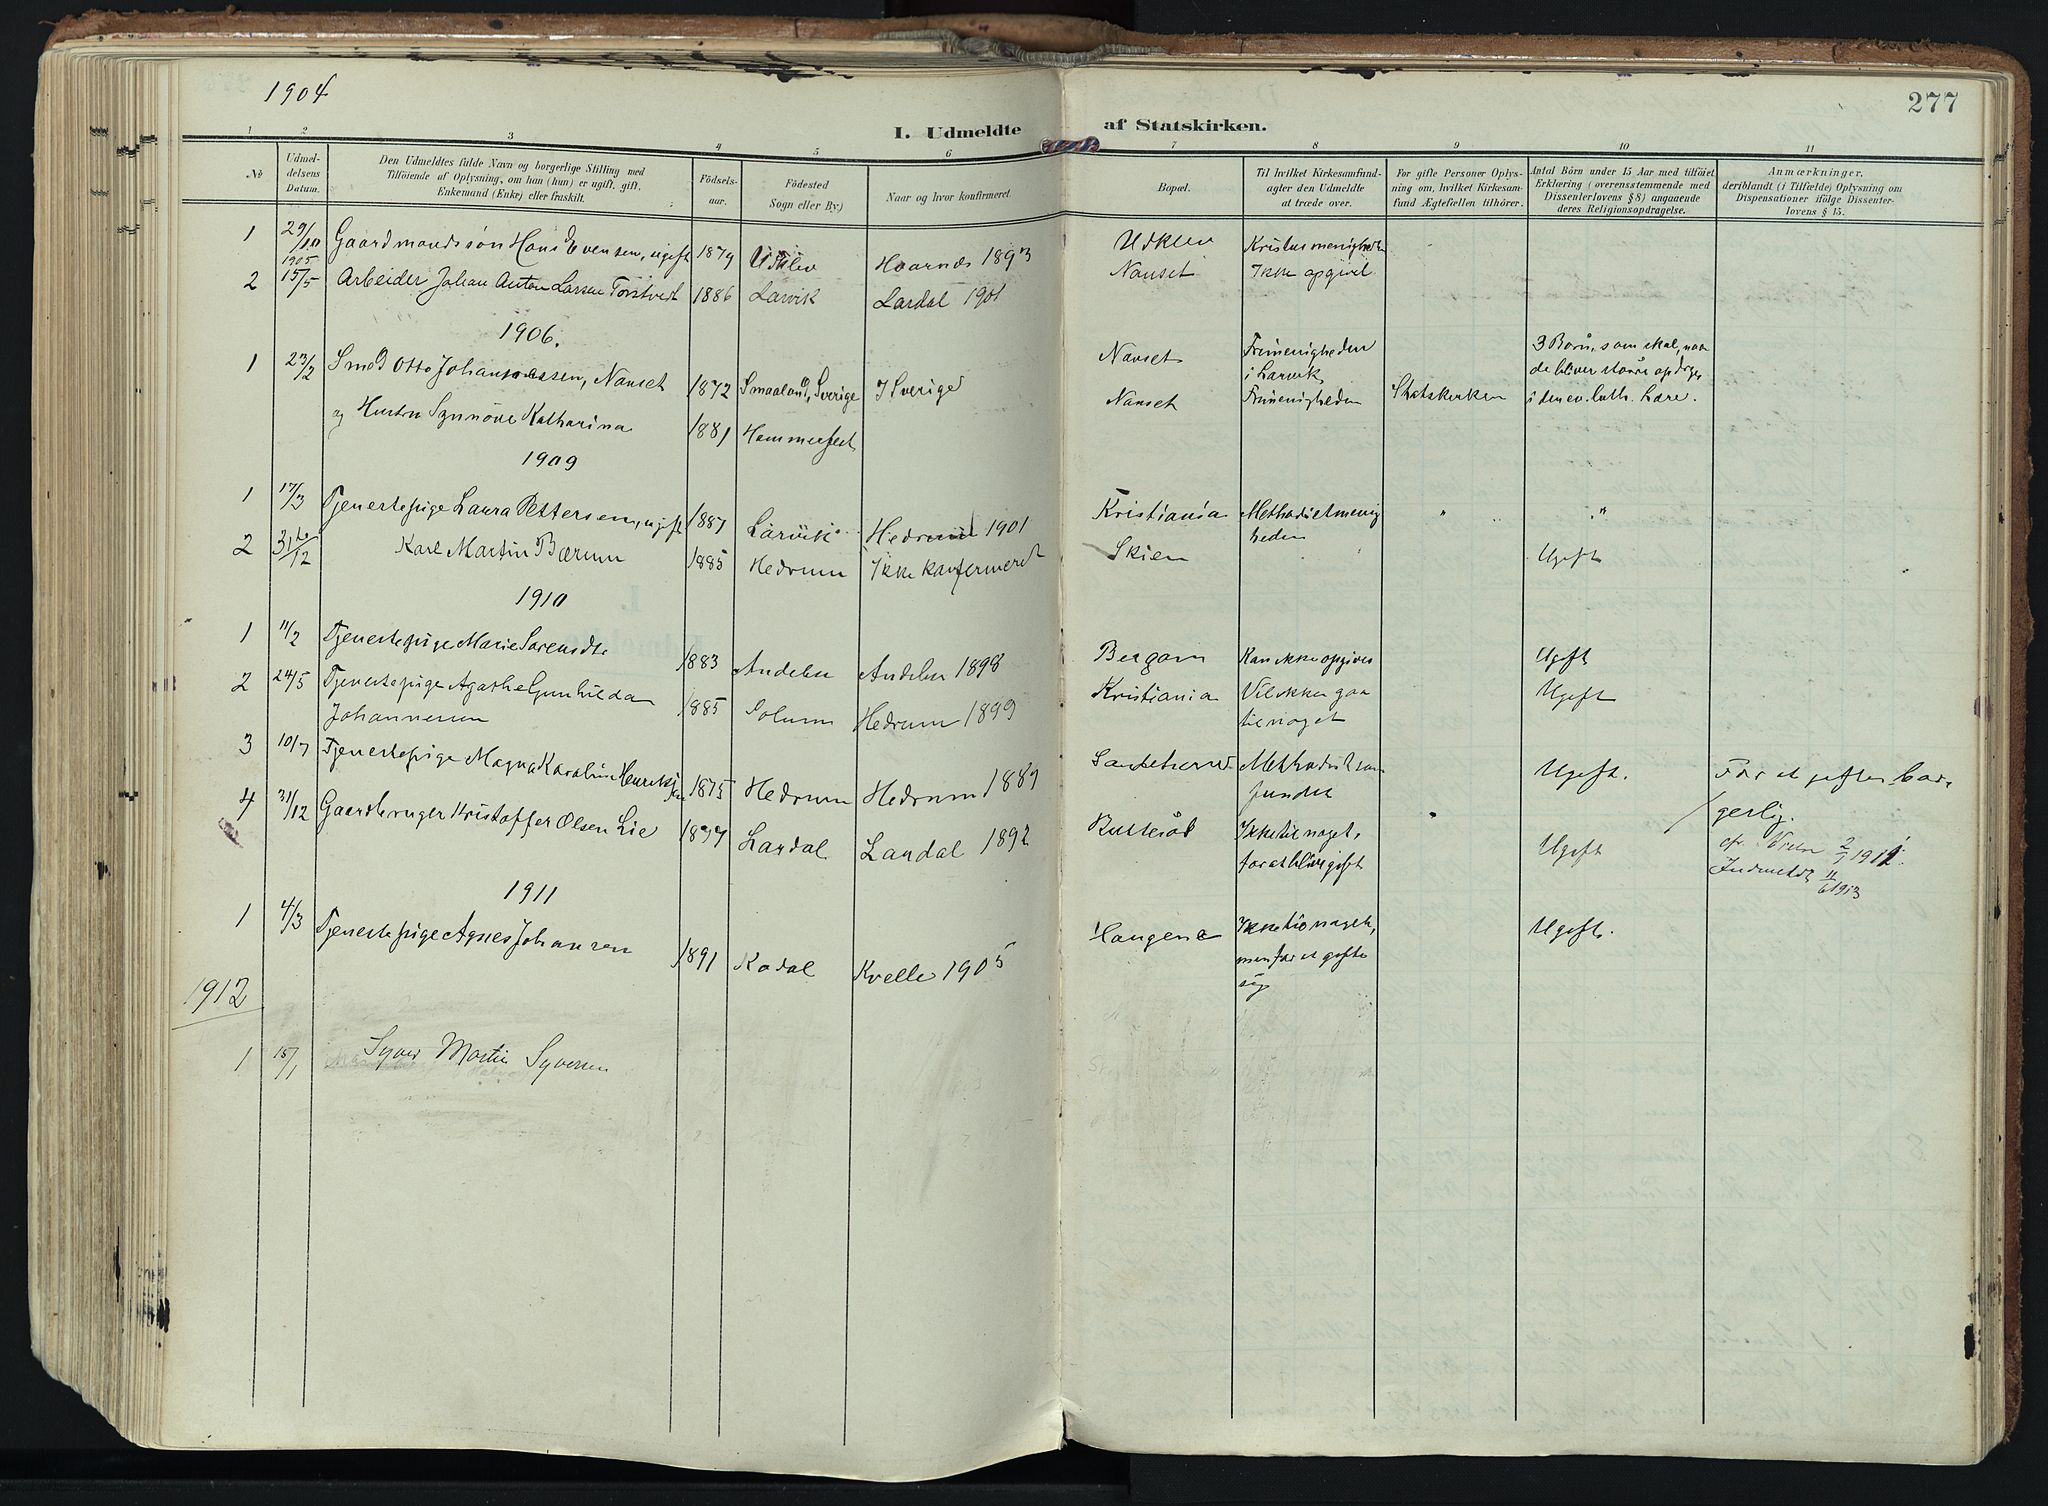 1904
277
I. Udmeldte af Statskirken.
1 2 3 4 5 6 7 8 9 10 11
No
Udmeldelsens Datum.
Den Udmeldtes fulde Navn og borgerlige Stilling med
Tilföiende af Oplysning, om han (hun) er ugift, gift,
Enkemand (Enke) eller fraskilt.
Födselsaar.
Födested
Sogn eller By)
Naar og hvor konfirmeret.
Bopæl.
Til hvilket Kirkesamfund
agter den Udmeldte
at træde over.
For gifte Personer Oplysning
om, hvilket Kirkesamfund
Ægtefællen tilhörer.
Antal Börn under 15 Aar med tilföiet
Erklæring (overensstemmende med
Dissenterlovens § 8) angaaende
deres Religionsopdragelse.
Anmærkninger,
deriblandt (i Tilfælde) Oplysning om
Dispensationer ifölge Dissenterlovens § 15.
1 29/10 Gaardmandssøn Hans Evensen, ugift 1879 Udklev Hvarnes 1893 Udklev Kristus menigheden
1905
2 15/5 Arbeider Johan Anton Larsen Torstvedt 1886 Larvik Lardal 1901 Nanset Ikke opgivit
1906.
1 23/2 Smed Otto Johannessen, Nanset 1872 Smaaland, Sverige I Sverige Nanset Frimenigheden i Larvik 3 Børn, som skal, naar
de bliver større opdrages
og Hustru Synnöve Katharina 1881 Hammerfest Nanset Frimenigheden Statskirken i den ev. luth. Lære.
1909
1 17/3 Tjenestepige Laura Pettersen, ugift 1887 Larvik Hedrum 1901 Kristiania Methodistmenigheden " " "
2 31te/12 Karl Martin Bærum 1885 Hedrum Ikke konfermeret Skien Ugift
1910
1 11/2 Tjenestepige Marie Sorensdtr 1883 Andebu Andebu 1898 Bergan Kan ikke opgives Ugift
2 24/5 Tjenestepige Agathe Gunhilda
Johannessen 1885 Solum Hedrum 1899 Kristiania Vil ikke gaa
til noget Ugift
3 10/7 Tjenestepige Magna Karoline Henriksen 1875 Hedrum Hedrum 1889 Sandeherred Methodistsamfundet Ugift. For at giftes borgerlig.
4 31/12 Gaardbruger Kristoffer Olsen Lie 1877 Lardal Lardal 1892 Ikke til noget,
for at blive gift Ugift
cfr. 2/1 1911.
Indmeldt 11/6 1913
1911
1 4/3 Tjenestepige Agnes Johansen 1891 Kodal Kvelle 1905 Haugene Ikke til noget,
men for at gifte
sig Ugift.
1912
1 15/1 Syver Martin Syversen